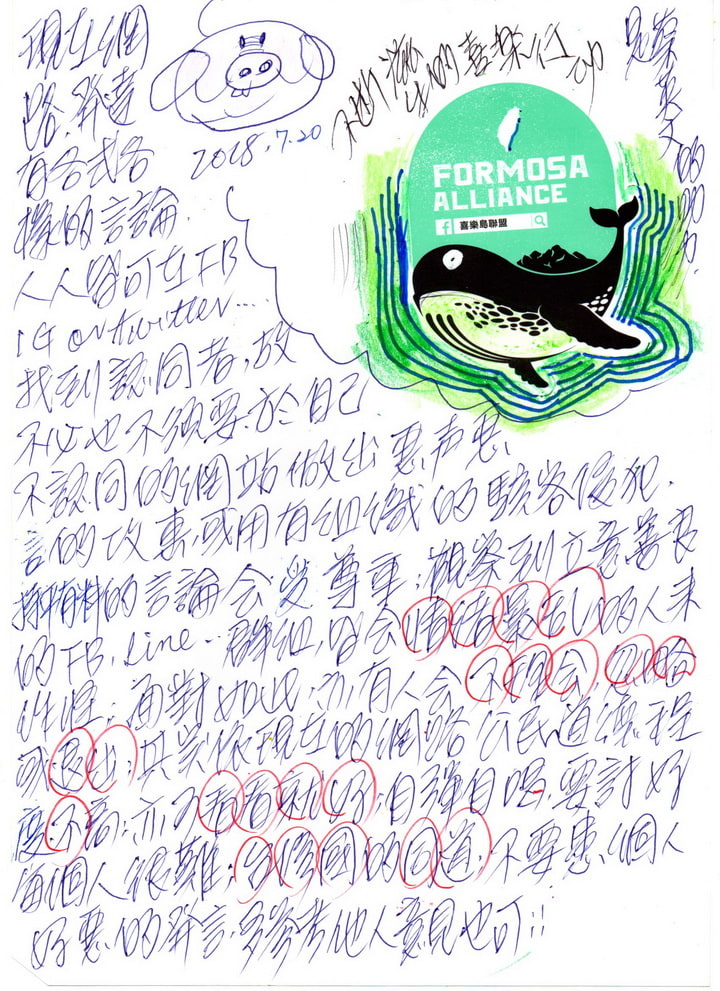 現在網
路發達
有各式各
樣的言論
人人皆可在FB
IG or twitter....
找到認同者,故
不必也不須要於自己
不認同的網站做出惡声惡
言的攻專,或用有組織的駭客侵犯.
的言論会受尊重;觀察到立意善良
的FB, Line…群組,皆会情緒暴乱的人來
面對如此,亦有人会不理会,
或退出;其實依現在的網路公民道德程
度不高;亦可看看就好;自彈自唱,要討好
每個人很難;台僑國的同道,不要患個人
好惡的發言,多參考他人意見也可;;
2018.7.20
不斷滋生的喜樂行動
見蔡英文的
FORMOSA
ALLIANCE
f 喜樂島聯盟